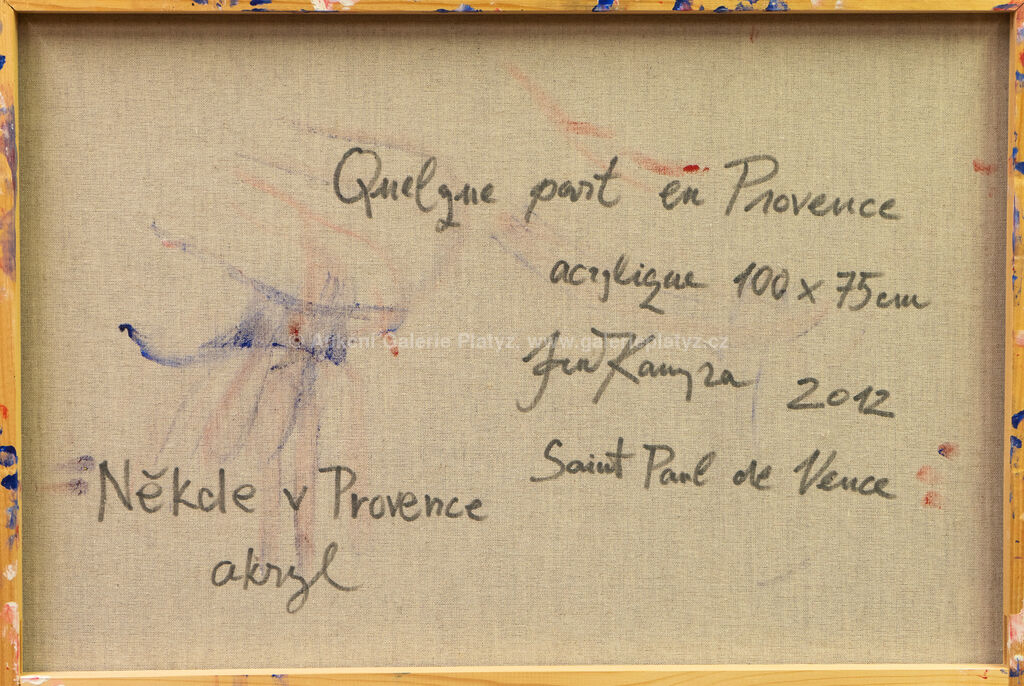 Quelque part en Provence
acrylique 100 x 75 cm
© Aukční Galerie Platýz, www.galerieplatyz-cz
2012
Saint Paul de Vence
Někde v Provence
akryl